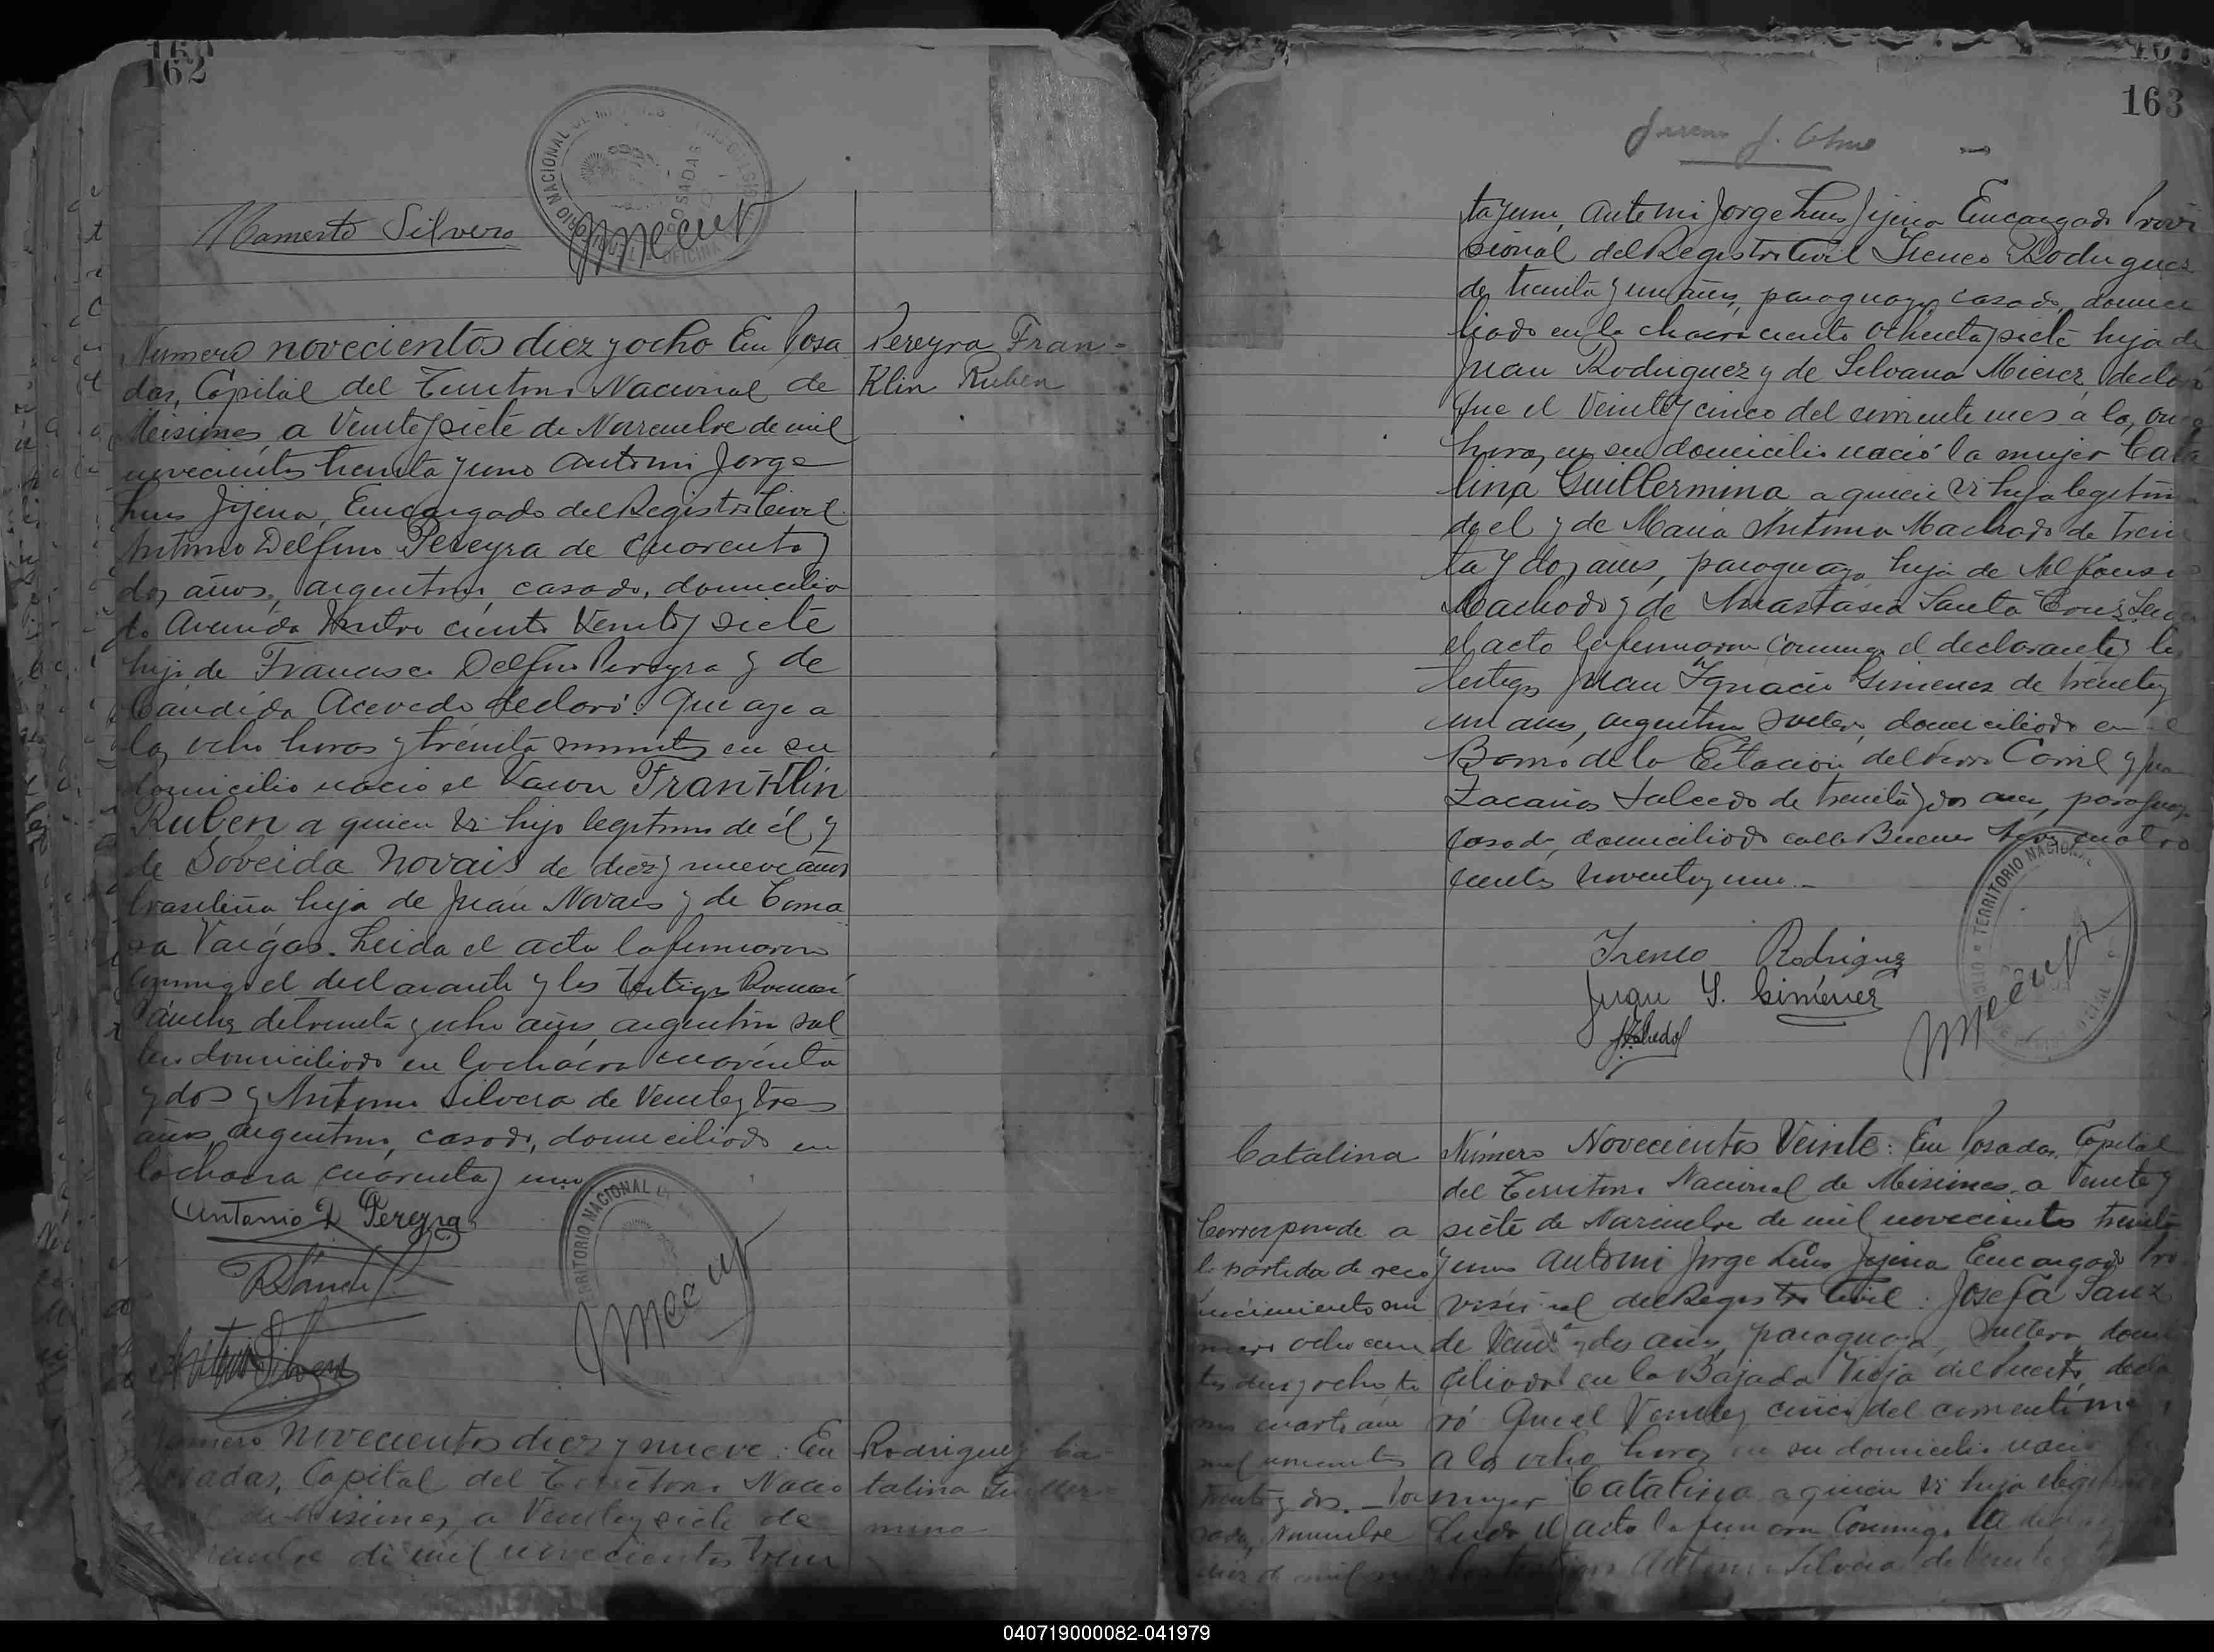 162
Mamerto Silvero
TERRITORIO NACIONAL DE MISIONES
POSADAS
OFICINA
Pereyra Fran-
Klin Ruben
Numero novecientos diez y ocho En Posa
das, Capital del Territorio Nacional de
Misiones, a Veinte y siete de Noviembre de mil
novecientos treinta y uno ante mi Jorge
Luis Jijena, Encargado del Registro Civil
Antonio Delfino Pereyra de cuarenta y
dos años, argentino, casado, domicilia
do Avenida Mitre ciento Veinte y siete
hijo de Francisco Delfin Pereyra y de
Candida Acevedo declaró: Que aye a
las ocho horas y treinta minutos en su
domicilio nacio el Varon Franklin
Ruben a quien vi hijo legitimo de él y
de Soveida Novais de diez y nueve años
brasileña hija de Juan Novais y de Toma
sa Vargas. Leida el acta la firmaron
conmigo el declarante y los testigos
Sanchez de treinta y ocho años, argentino sol
tero domiciliado en la chacra cuarenta
y dos y Antonio Silvera de Veinte y tres
años, argentino, casado, domiciliado en
la chacra cuarenta y uno
Antonio D Pereyra
RSánchez
TERRITORIO NACIONAL
Antonio Silvera
Rodriguez Ca-
talina Guiller-
mina
Numero novecientos diez y nueve: En
Posadas, Capital del Territorio Nacio
de Misiones, a Veinte y siete de
de mil novecientos trein
163
ta y uno, ante mi Jorge Luis Jijena Encargado Provi
sional del Registro Civil Ireneo Rodriguez
de treinta y un años, paraguayo, casado, domici
liado en la chacra ciento ochenta y siete hijo de
Juan Rodriguez y de Silvana Mierez declaró
Que el Veinte y cinco del corriente mes a las once
horas, en su domicilio nació la mujer Cata
lina Guillermina a quien vi hija legitima
de el y de Maria Antonia Machado de trein
ta y dos años, paraguaya hija de Alfonso
Machado y de Anastasia Santa Cruz. Leida
el acta la firmaron conmigo el declarante y los
testigos Juan Ignacio Gimenez de treinta y
un años, argentino soltero, domiciliado en el
Barrio de la Estacion del Ferro Carril y
Zacarias Salcedo de treinta y dos años, paraguayo
casado, domiciliado calle Buenos Aires cuatro
cientos noventa y uno.-
Ireneo Rodriguez
Juan Y. Giménez
TERRITORIO NACIONAL
Catalina
Corresponde a
la partida de reco
nocimiento nu
mero ochocien
tos diez y ocho to
mo cuarto año
mil novecientos
treinta y dos.- Po
sadas, Noviembre
diez de mil
Número Novecientos Veinte: En Posadas, Capital
del Territorio Nacional de Misiones, a Veinte y
siete de Noviembre de mil novecientos treinta
y uno ante mi Jorge Luis Jijena Encargado Pro
visional del Registro Civil: Josefa Sanz
de Veinte y dos años, paraguaya, soltera, domi
ciliada en la Bajada Vieja del Puerto, decla
ró Que el Veinte y cinco del corriente mes,
a las ocho horas en su domicilio nació la
mujer Catalina a quien vi hija ilegitima
Leida el acta la firmaron conmigo la
y los testigos Antonio Silvera de Veinte
040719000082-041979